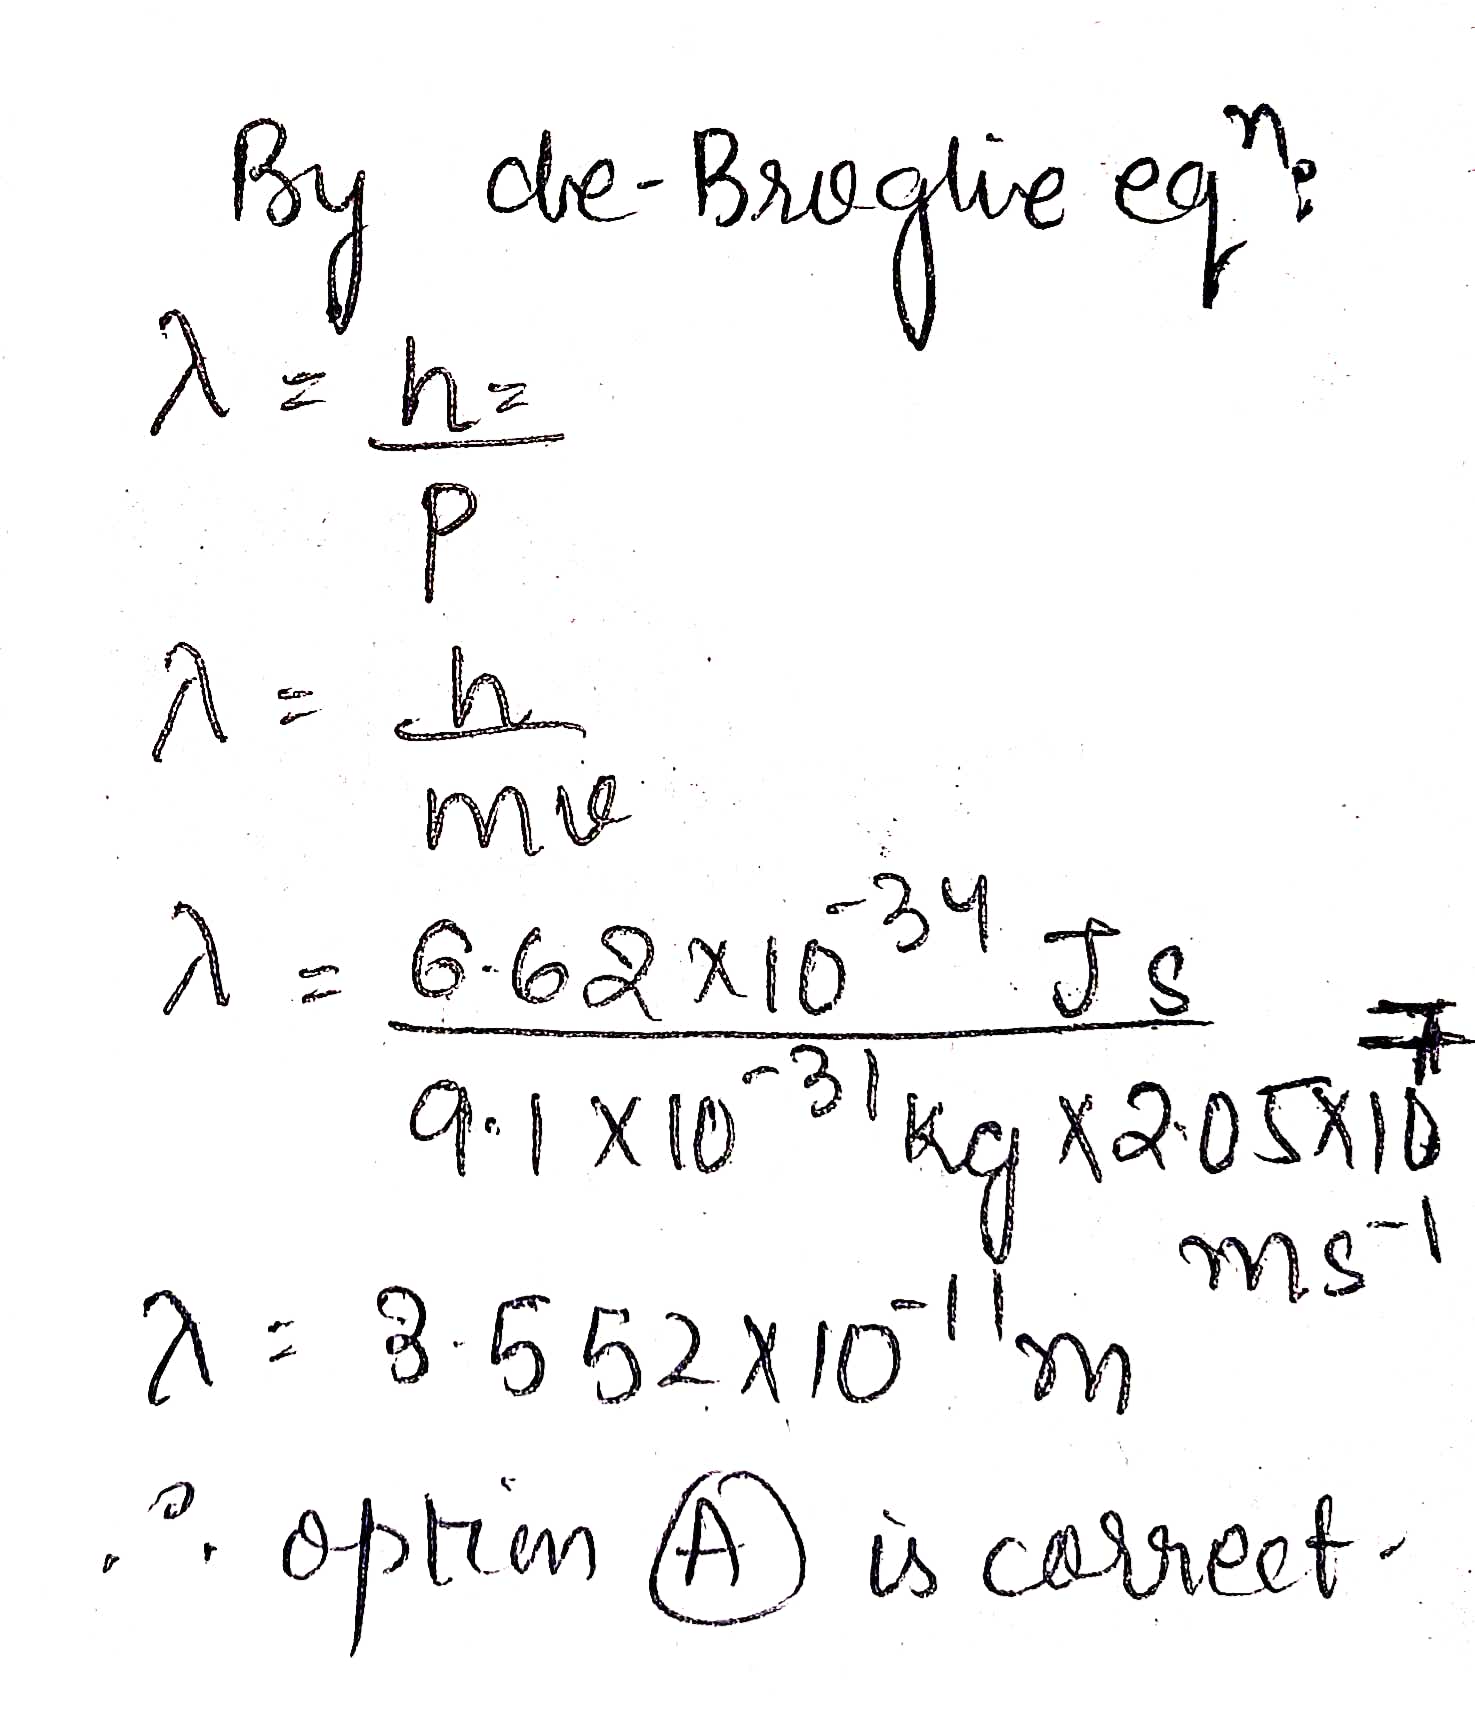 By de-Broglie eqⁿ:
λ = h =
p
λ = h
mv
λ = 6.62 x 10⁻³⁴ J s
9.1 x 10⁻³¹ kg x 2.05 x 10⁷
ms⁻¹
λ = 3.552 x 10⁻¹¹ m
∴ option A is correct.